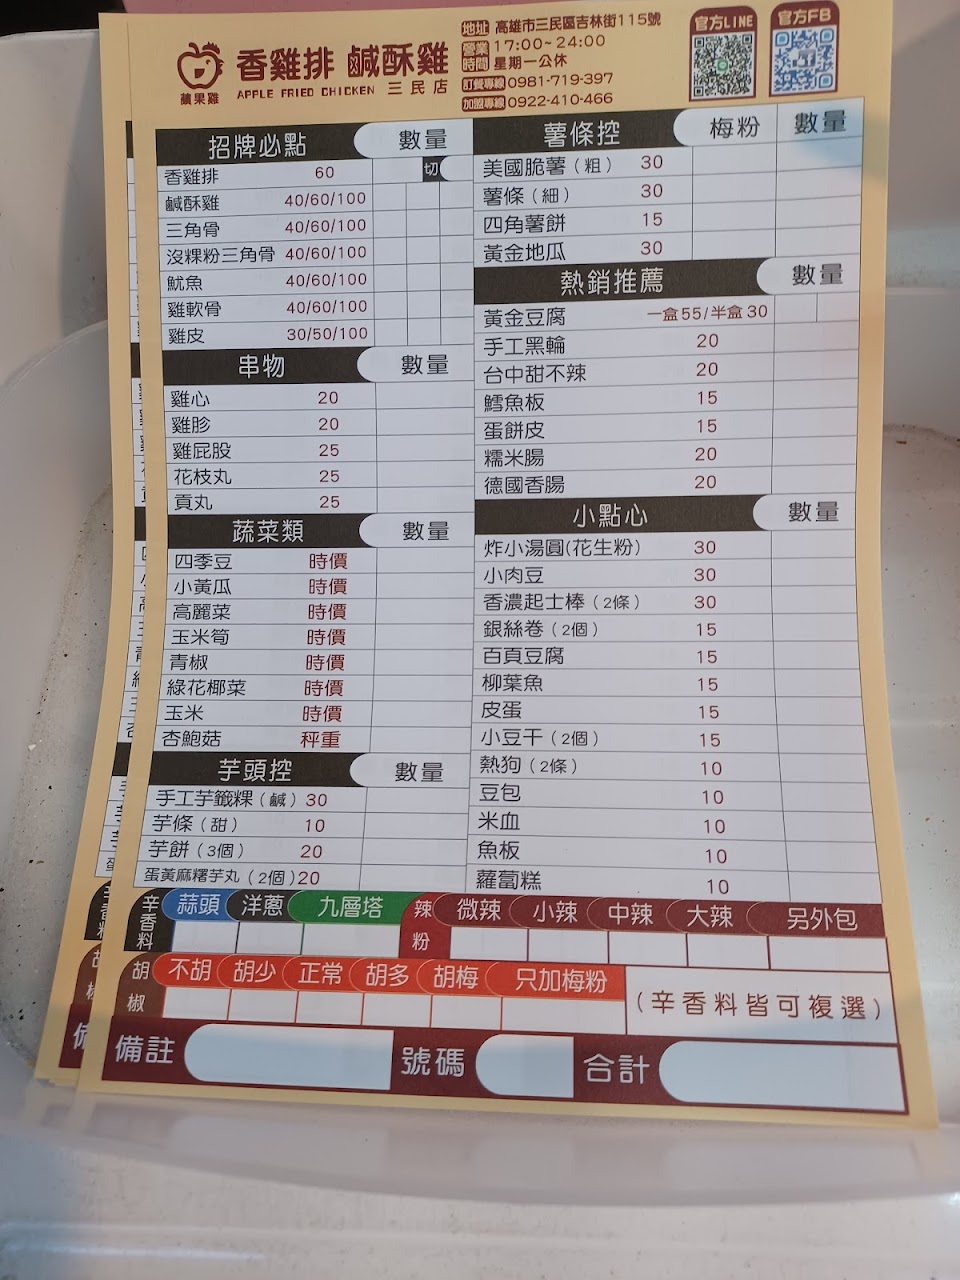 蘋果雞
香雞排 鹹酥雞
APPLE FRIED CHICKEN 三民店
地址 高雄市三民區吉林街115號
營業時間 17:00~24:00
星期一公休
訂餐專線 0981-719-397
加盟專線 0922-410-466
官方LINE
官方FB
招牌必點 數量
香雞排 60 切
鹹酥雞 40/60/100
三角骨 40/60/100
沒粿粉三角骨 40/60/100
魷魚 40/60/100
雞軟骨 40/60/100
雞皮 30/50/100
串物 數量
雞心 20
雞胗 20
雞屁股 25
花枝丸 25
貢丸 25
蔬菜類 數量
四季豆 時價
小黃瓜 時價
高麗菜 時價
玉米筍 時價
青椒 時價
綠花椰菜 時價
玉米 時價
杏鮑菇 秤重
芋頭控 數量
手工芋籤粿(鹹) 30
芋條(甜) 10
芋餅(3個) 20
蛋黃麻糬芋丸(2個) 20
薯條控 梅粉 數量
美國脆薯(粗) 30
薯條(細) 30
四角薯餅 15
黃金地瓜 30
熱銷推薦 數量
黃金豆腐 一盒55/半盒30
手工黑輪 20
台中甜不辣 20
鱈魚板 15
蛋餅皮 15
糯米腸 20
德國香腸 20
小點心 數量
炸小湯圓(花生粉) 30
小肉豆 30
香濃起士棒(2條) 30
銀絲卷(2個) 15
百頁豆腐 15
柳葉魚 15
皮蛋 15
小豆干(2個) 15
熱狗(2條) 10
豆包 10
米血 10
魚板 10
蘿蔔糕 10
辛香料 蒜頭 洋蔥 九層塔
辣粉 微辣 小辣 中辣 大辣 另外包
胡椒 不胡 胡少 正常 胡多 胡梅 只加梅粉
(辛香料皆可複選)
備註 號碼 合計